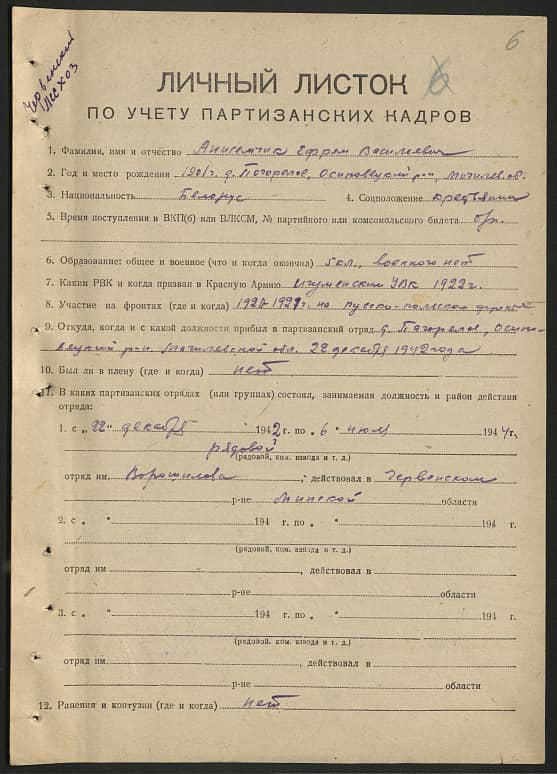 6
Червенский
Лесхоз
ЛИЧНЫЙ ЛИСТОК
ПО УЧЕТУ ПАРТИЗАНСКИХ КАДРОВ
1. Фамилия, имя и отчество Анисемчик Ефрем Василевич
2. Год и место рождения 1901г. д. Погорелое, Осиповецкий р-н, Могилев. об.
3. Национальность Белорус 4. Соцположение крестьянин
5. Время поступления в ВКП(б) или ВЛКСМ, № партийного или комсомольского билета б/п.
6. Образование: общее и военное (что и когда окончил) 5 кл., военного нет
7. Каким РВК и когда призван в Красную Армию Игуменским УВК 1922г.
8. Участие на фронтах (где и когда) на Русско-польском фронте
9. Откуда, когда и с какой должности прибыл в партизанский отряд д. Погорелое, Осипо-
вецкий р-н. Могилевской обл. 22 декабря 1942 года
10. Был ли в плену (где и когда) нет
11. В каких партизанских отрядах (или группах) состоял, занимаемая должность и район действия
отряда:
1. с „22" декабря 1942 г. по „6" июля 1944 г.
рядовой
(рядовой, ком. взвода и т. д.)
отряд им. Ворошилова, действовал в Червенском
р-не Минской области
2. с „ " 194 г. по „ " 194 г.
(рядовой, ком. взвода и т. д.)
отряд им , действовал в
р-не области
3. с „ " 194 г. по „ " 194 г.
(рядовой, ком. взвода и т. д.)
отряд им. , действовал в
р-не области
12. Ранения и контузии (где и когда) нет